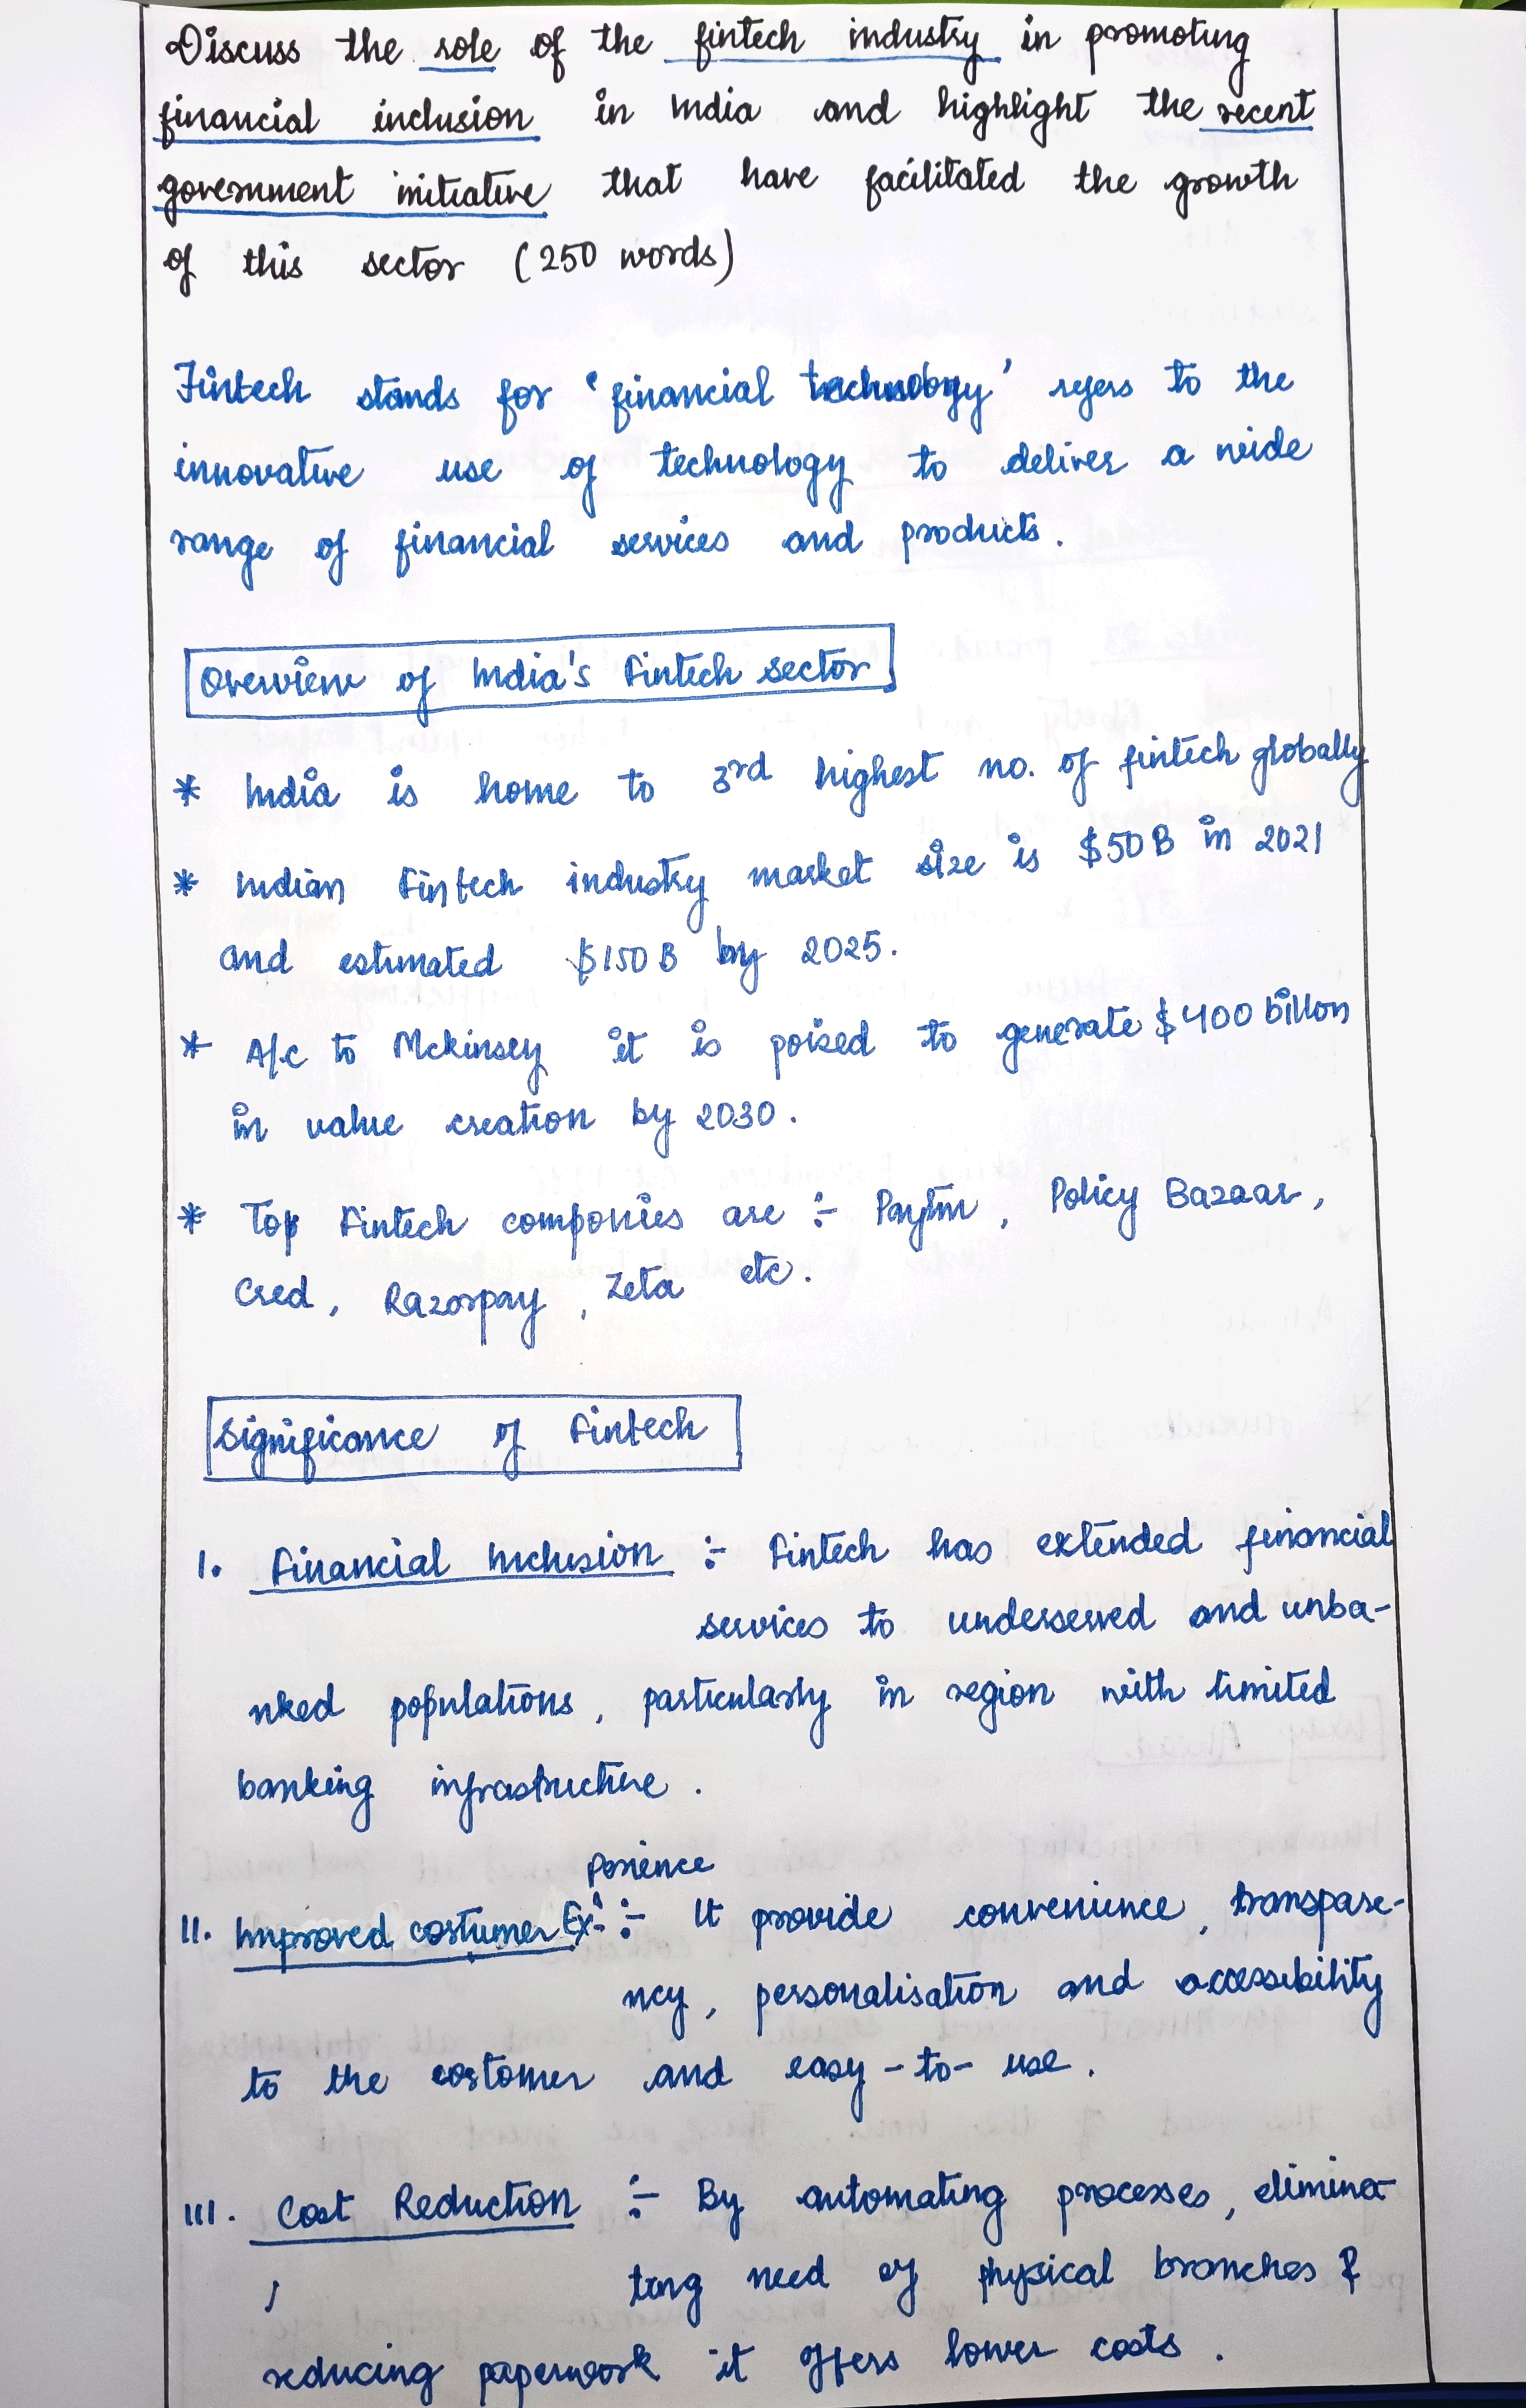 Discuss the role of the fintech industry in promoting
financial inclusion in India and highlight the recent
government initiative that have facilitated the growth
of this sector (250 words)
Fintech stands for 'financial technology' refers to the
innovative use of technology to deliver a wide
range of financial services and products.
Overview of India's Fintech sector
* India is home to 3rd highest no. of fintech globally
* Indian Fintech industry market size is $50B in 2021
and estimated $150B by 2025.
* A/c to Mckinsey it is poised to generate $400 billon
in value creation by 2030.
* Top Fintech companies are :- Paytm, Policy Bazaar,
Cred, Razorpay, Zeta etc.
Significance of Fintech
I. Financial Inclusion :- Fintech has extended financial
services to underserved and unba-
nked populations, particularly in region with limited
banking infrastructure.
perience
II. Improved costumer Ex- :- It provide convenience, transpare-
ncy, personalisation and accessibility
to the costomer and easy-to-use.
III. Cost Reduction :- By automating processes, elimina-
ting need of physical branches &
reducing paperwork it offers lower costs.